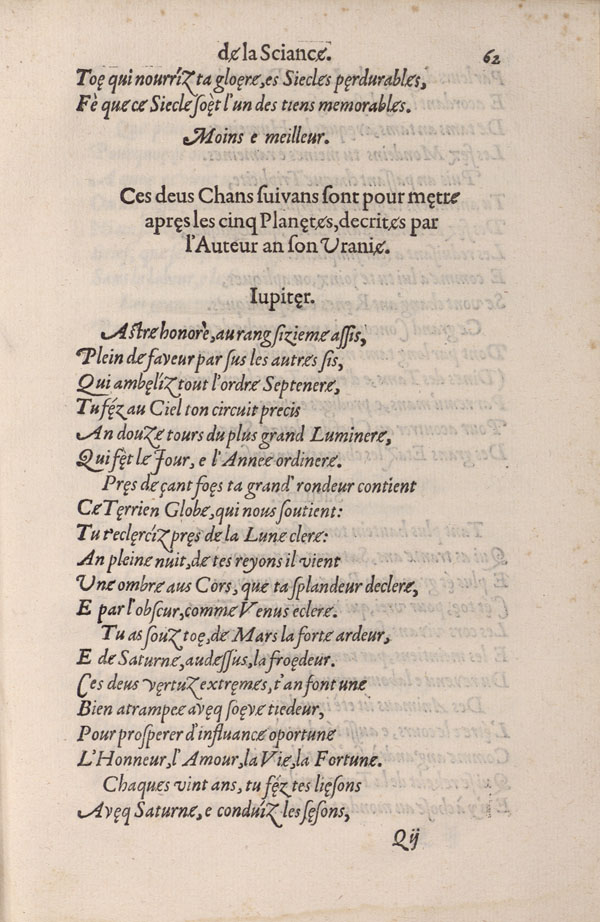 de la Sciancę. 62
Toę qui nourríz ta gloęrę, es Sieclęs pęrdurablęs,
Fè que cę Sieclę soęt l'un des tiens memorablęs.
Moins e meilleur.
Ces deus Chans suivans sont pour męttrę
apręs les cinq Planętęs, decritęs par
l'Auteur an son Uranię.
Iupitęr.
Astrę honorè, au rang sizięmę assis,
Plein dę faveur par sus les autręs sis,
Qui ambęlíz tout l'ordrę Septenerę,
Tu féz au Ciel ton circuit precis
An douzę tours du plus grand Luminerę,
Qui fęt lę Jour, e l'Anneę ordinerę.
Pręs dę çant foęs ta grand' rondeur contient
Cę Tęrrien Globę, qui nous soutient:
Tu t'eclęrcíz pręs dę la Lunę clerę:
An pleinę nuit, dę tes reyons il vient
Unę ombrę aus Cors, quę ta splandeur declerę,
E par l'obscur, commę Venus eclerę.
Tu as souz toę, dę Mars la fortę ardeur,
E dę Saturnę, audessus, la froędeur.
Ces deus vęrtuz extręmęs, t'an font unę
Bien atrampeę avęq soęvę tiedeur,
Pour prosperer d'influancę oportunę
L'Honneur, l'Amour, la Vię, la Fortunę.
Chaquęs vint ans, tu féz tes lięsons
Avęq Saturnę, e conduíz les sęsons,
Q ij